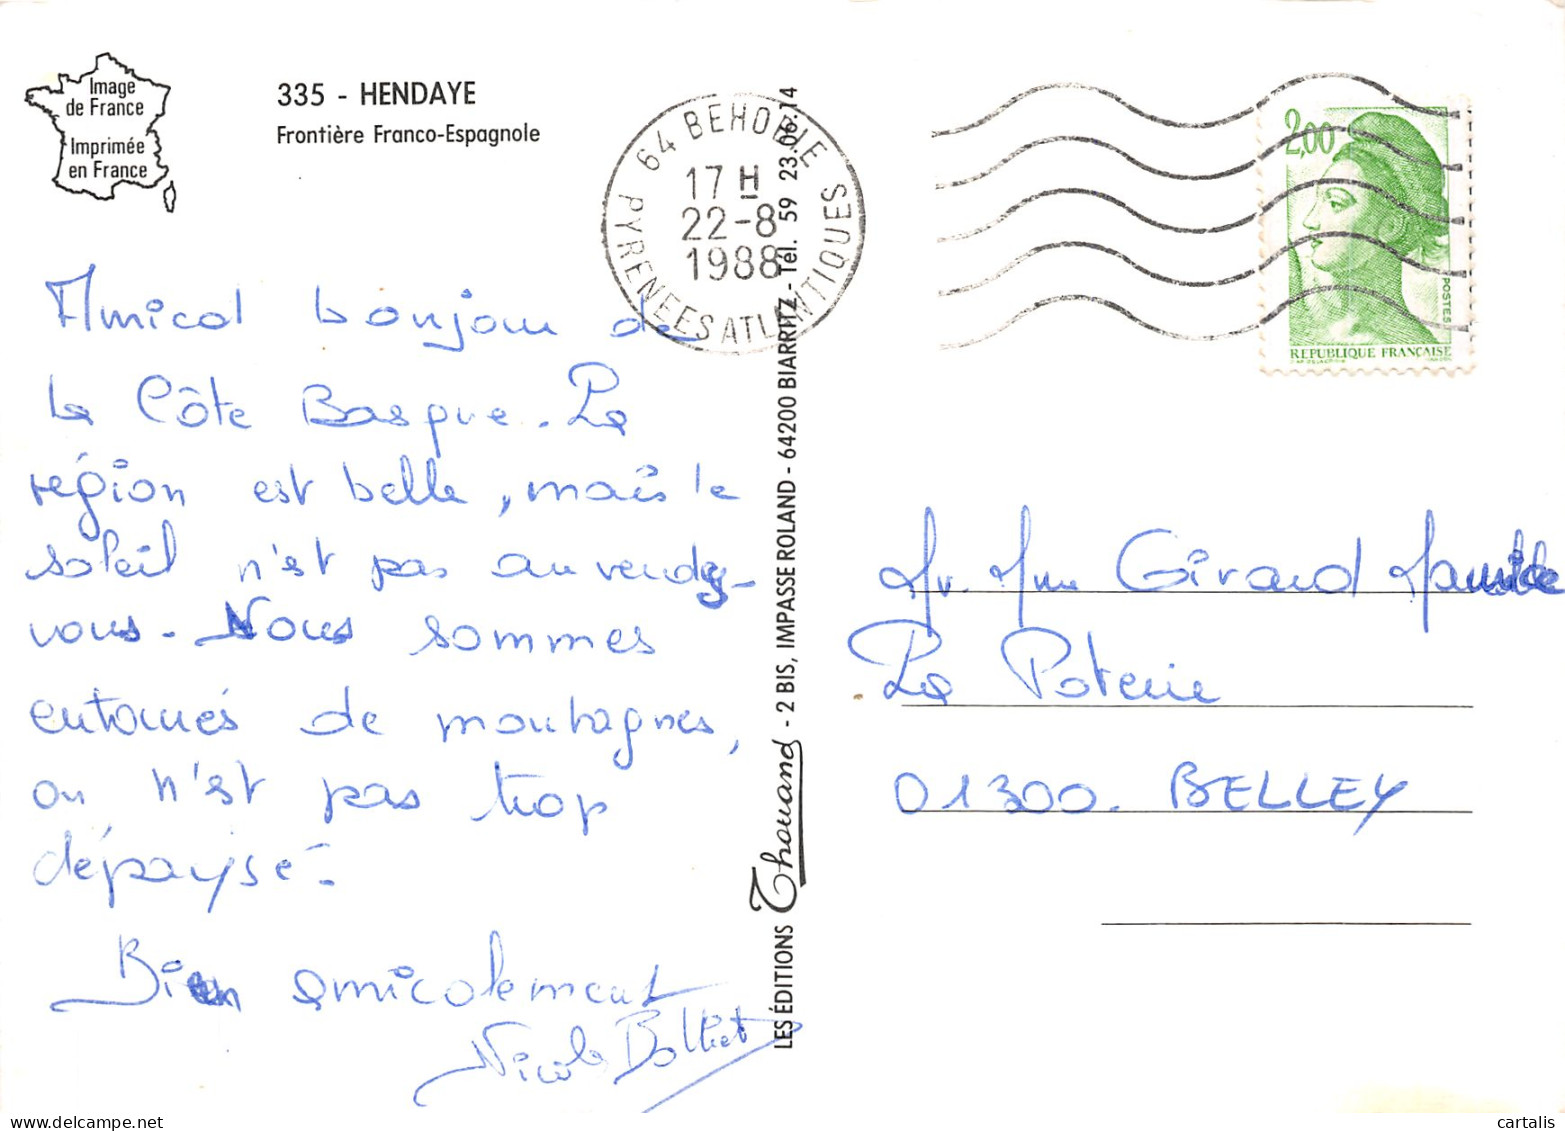 Image
de France
Imprimée
en France
335 - HENDAYE
Frontière Franco-Espagnole
64 BEHOBIE
17 H
22-8
1988
PYRENEES ATLANTIQUES
2,00
POSTES
REPUBLIQUE FRANÇAISE
Amical bonjour de
la Côte Basque. La
région est belle, mais le
soleil n'est pas au rendez-
vous. Nous sommes
entourés de montagnes,
on n'est pas trop
dépaysé.
Bien amicalement
Nicole
LES ÉDITIONS Thouand - 2 BIS, IMPASSE ROLAND - 64200 BIARRITZ - Tél. 59 23.06.14
Mr. Mme Girard
La Poterie
01300. BELLEY
cartalis